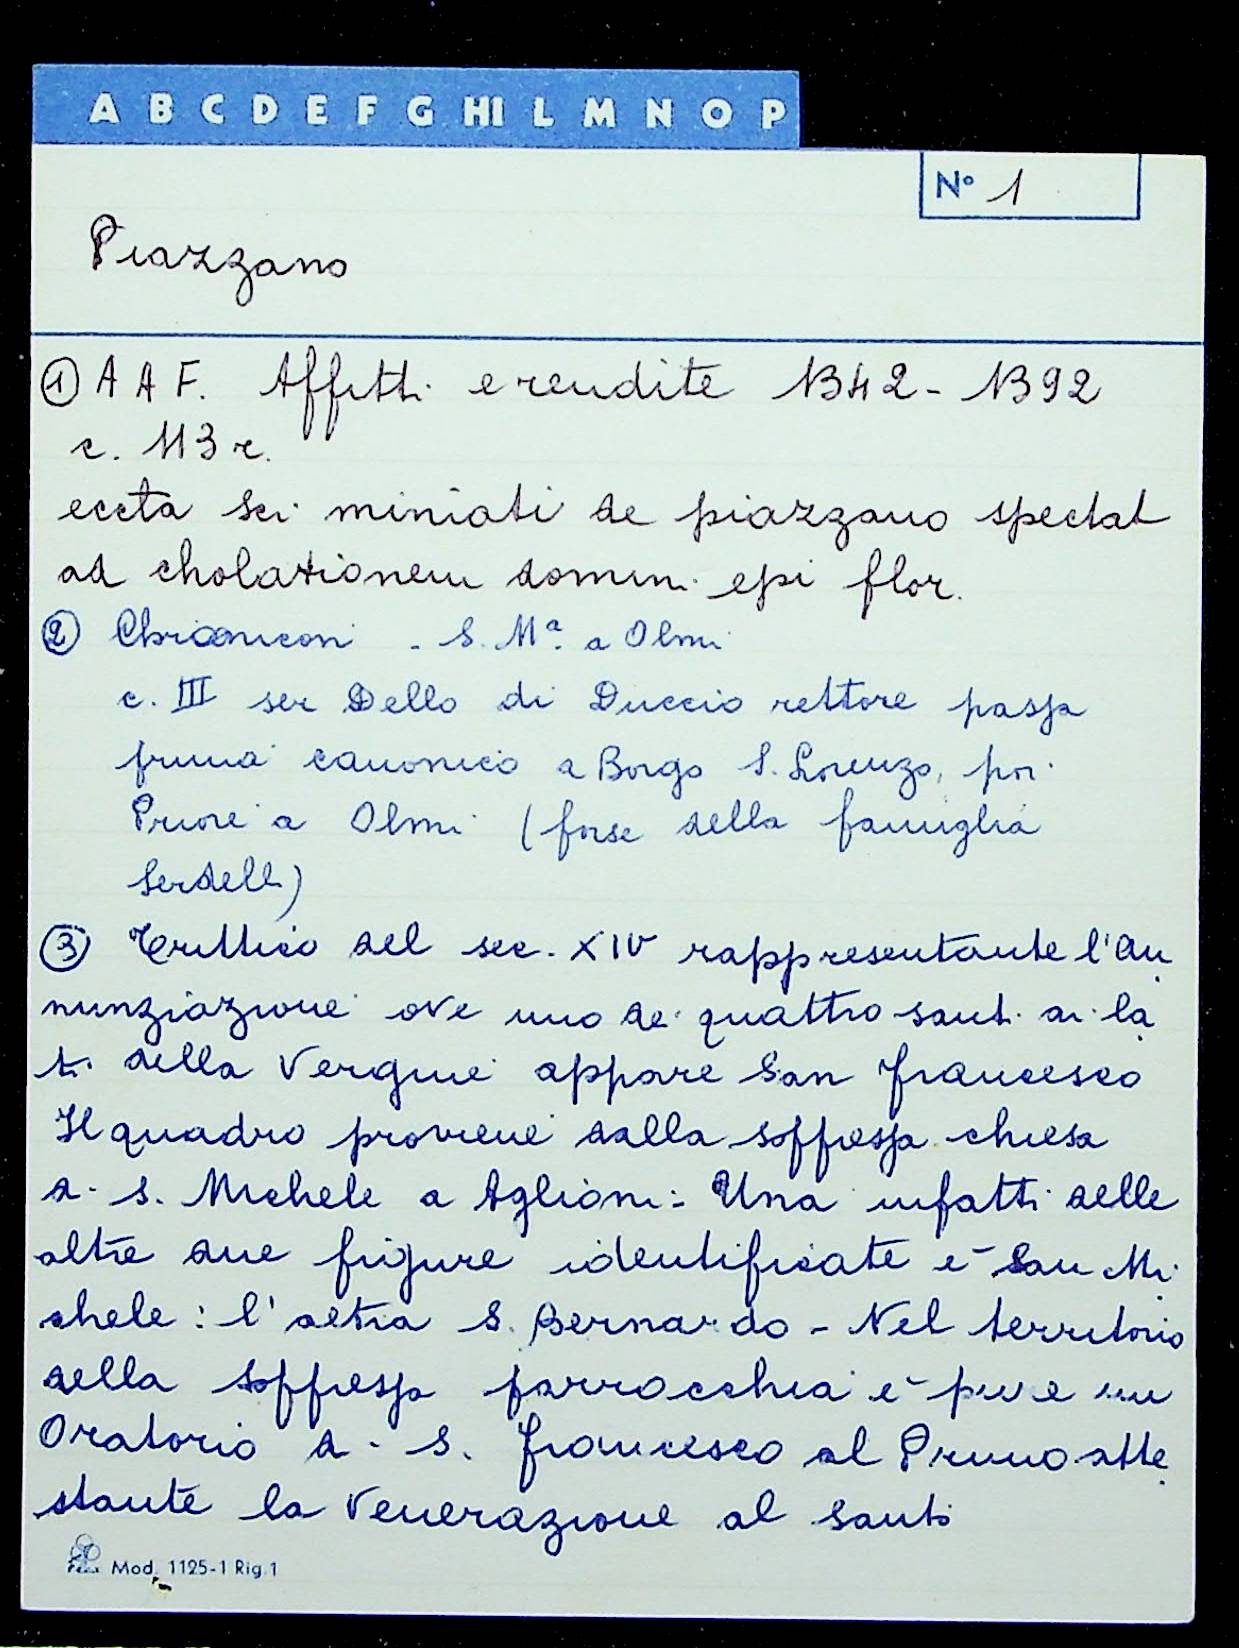 A B C D E F G HI L M N O P
N° 1
Piazzano
① A A F. Affitti e rendite 1342 - 1392
c. 113 r.
eccta sci miniati de piazzano spectat
ad cholationem domini epi flor.
② Chroniconi - S. Mª. a Olmi
c. III ser Dello di Duccio rettore passa
prima canonico a Borgo S. Lorenzo, poi
Priore a Olmi (forse della famiglia
Serdelli)
③ Trittico del sec. XIV rappresentante l'An
nunziazione ove uno dei quattro santi ai la
ti della Vergine appare San Francesco
Il quadro proviene dalla soffressa chiesa
di S. Michele a Aglioni: Una infatti delle
altre due figure identificate è San Mi
chele: l'altra S. Bernardo - Nel territorio
della soffressa parrocchia è pure un
Oratorio di S. Francesco al Pruno atte
stante la venerazione al santo
Mod. 1125-1 Rig. 1